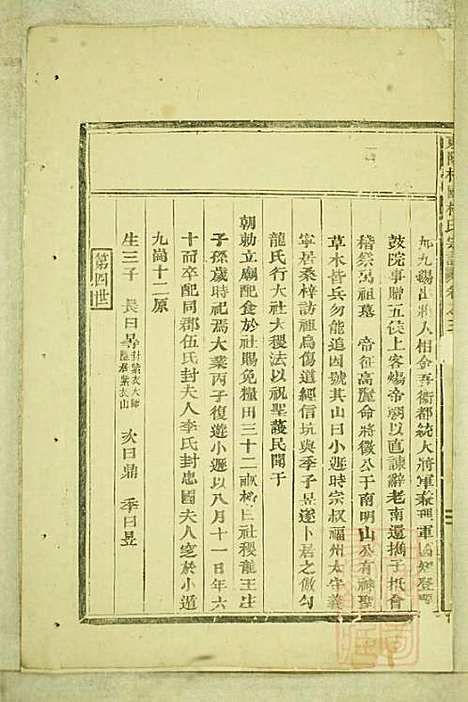 加九錫出將入相金吾衛都統大將軍兼理軍國知登聞
鼓院事贈五侯上客煬帝朝以直諫辭老南還攜子抵會
稽祭禹祖墓 帝征高麗命將徵公于南明山公有神聖
草木皆兵勿能追因號其山曰小遯時宗叔福州太守義
寧居桑梓訪祖烏傷道經信坑與季子昱遂卜居之倣勾
龍氏行大社大稷法以祝聖護民聞于
朝勅立廟配食於社賜免糧田三十二畝 社稷龍王生
子孫歲時祀焉大業丙子復遊小遯以八月十一日年六
十而卒配同郡伍氏封夫人李氏封忠國夫人窆於小遁
九崗十二原
生三子 長曰 封紫衣大師隱居紫衣山 次曰鼎 季曰昱
第四世